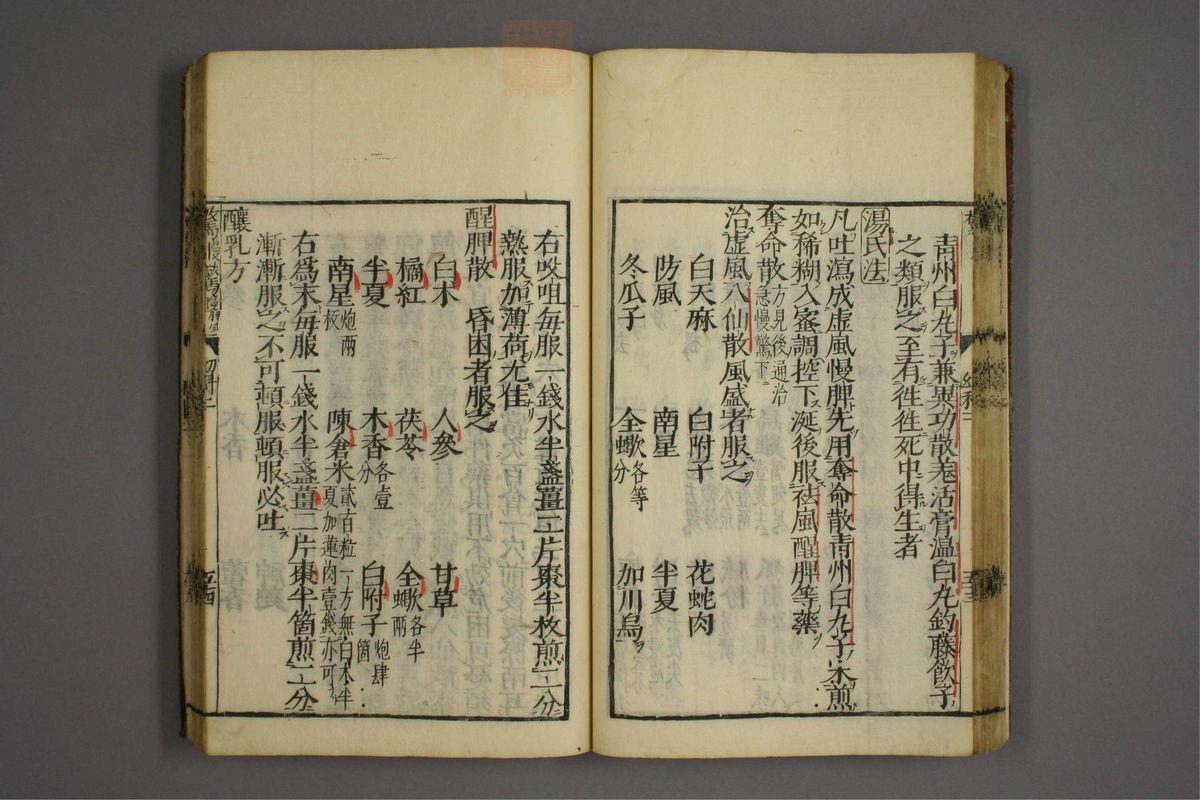 青州白丸子兼異功散羗活膏溫白丸釣藤飲子
之類服之至有徃徃死中得生者
湯氏法
凡吐瀉成虛風慢脾先用奪命散青州白丸子末煎
如稀糊入蜜調控下涎後服祛風醒脾等藥
奪命散方見後通治急慢驚下
治虛風八仙散風盛者服之
白天麻 白附子 花蛇肉
防風 南星 半夏
冬瓜子 全蠍各等分 加川烏
右㕮咀每服一錢水半盞薑二片棗半枚煎二分
熱服加薄荷尤佳
醒脾散 昏困者服之
白朮 人參 甘草
橘紅 茯苓 全蠍各半兩
半夏 木香各壹分 白附子炮肆箇
南星炮兩枚 陳倉米貳百粒一方無白朮半夏加蓮肉壹錢亦可
右爲末每服一錢水半盞薑二片棗半箇煎二分
漸漸服之不可頓服頓服必吐
釀乳方